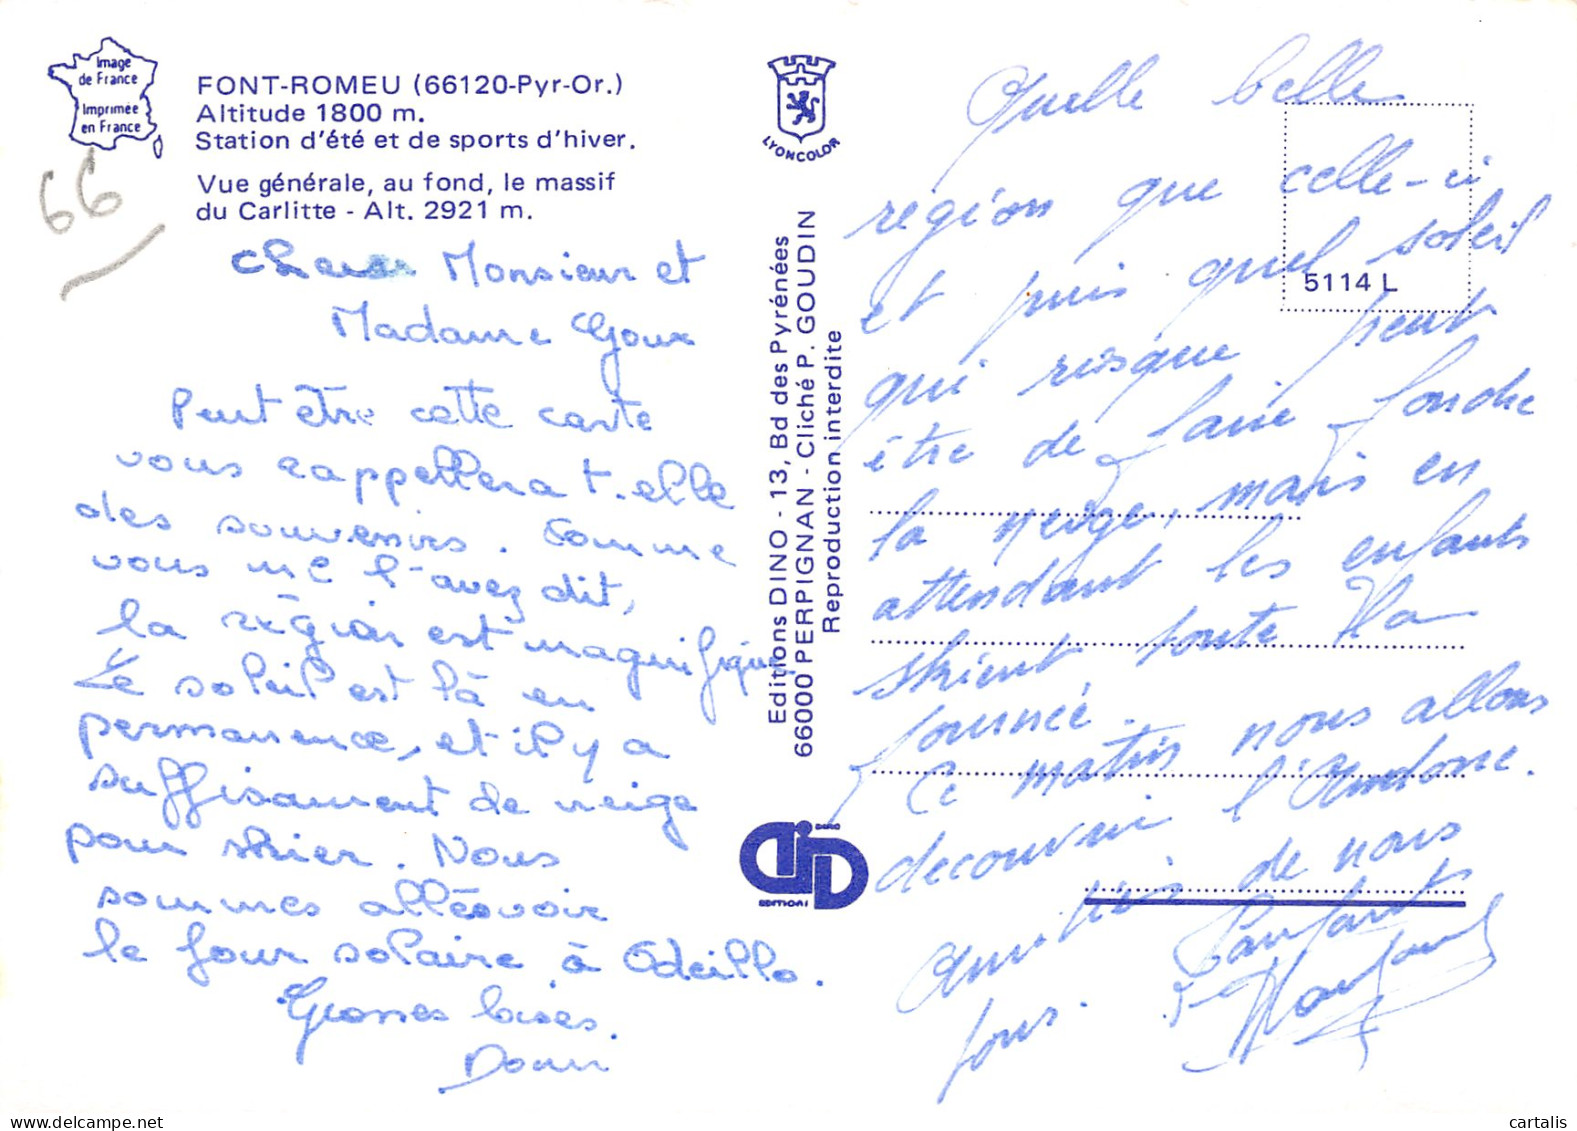 Image
de France
Imprimée
en France
66
FONT-ROMEU (66120-Pyr-Or.)
Altitude 1800 m.
Station d'été et de sports d'hiver.
Vue générale, au fond, le massif
du Carlitte - Alt. 2921 m.
Monsieur et
Madame Goux
Peut être cette carte
vous rappellera t-elle
des souvenirs. Comme
vous me l'avez dit,
la région est magnifique
Le soleil est là en
permanence, et il y a
suffisament de neige
pour skier. Nous
sommes allés voir
le four solaire à Odeillo.
Grosses bises.
LYONCOLOR
Editions DINO - 13, Bd des Pyrénées
66000 PERPIGNAN - Cliché P. GOUDIN
Reproduction interdite
DINO
EDITIONS
5114 L
Quelle belle
région que celle-ci
et puis quel soleil
qui risque peut
être de faire fondre
la neige, mais en
attendant les enfants
skient toute la
journée.
Ce matin nous allons
decouvrir l'Andorre.
Amitiés de nous
tous.
cartalis